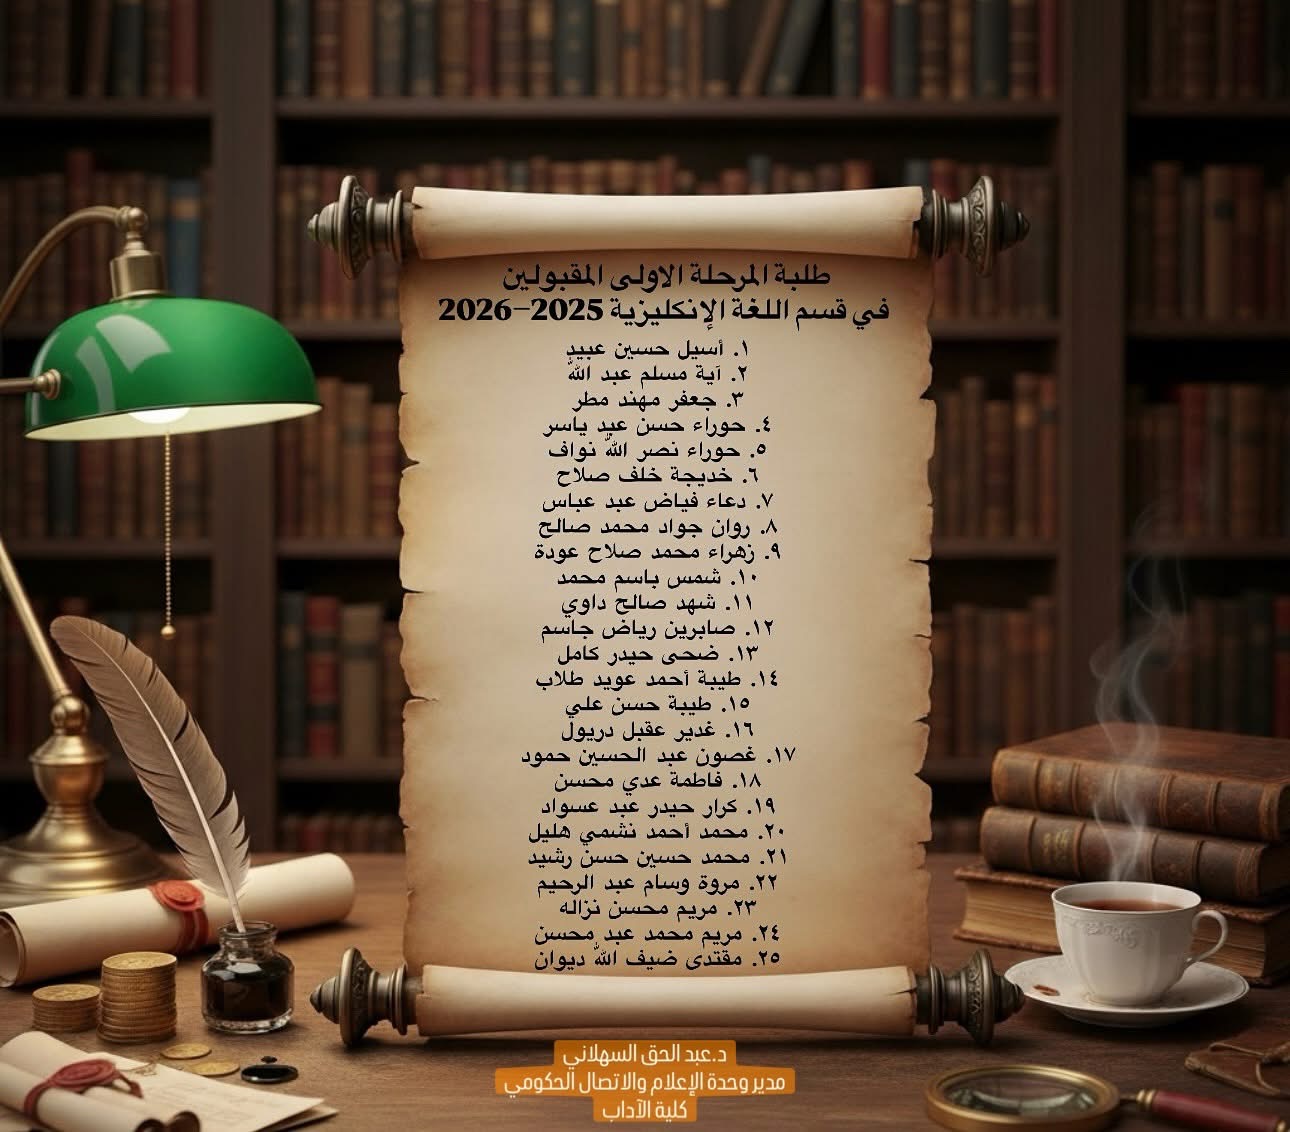 طلبة المرحلة الاولى المقبولين
في قسم اللغة الإنكليزية 2025-2026
١. أسيل حسين عبيد
٢. آية مسلم عبد الله
٣. جعفر مهند مطر
٤. حوراء حسن عبد ياسر
٥. حوراء نصر الله نواف
٦. خديجة خلف صلاح
٧. دعاء فياض عبد عباس
٨. روان جواد محمد صالح
٩. زهراء محمد صلاح عودة
١٠. شمس باسم محمد
١١. شهد صالح داوي
١٢. صابرين رياض جاسم
١٣. ضحى حيدر كامل
١٤. طيبة أحمد عويد طلاب
١٥. طيبة حسن علي
١٦. غدير عقبل دريول
١٧. غصون عبد الحسين حمود
١٨. فاطمة عدي محسن
١٩. كرار حيدر عبد عسواد
٢٠. محمد أحمد نشمي هليل
٢١. محمد حسين حسن رشيد
٢٢. مروة وسام عبد الرحيم
٢٣. مريم محسن نزاله
٢٤. مريم محمد عبد محسن
٢٥. مقتدى ضيف الله ديوان
د.عبد الحق السهلاني
مدير وحدة الإعلام والاتصال الحكومي
كلية الآداب